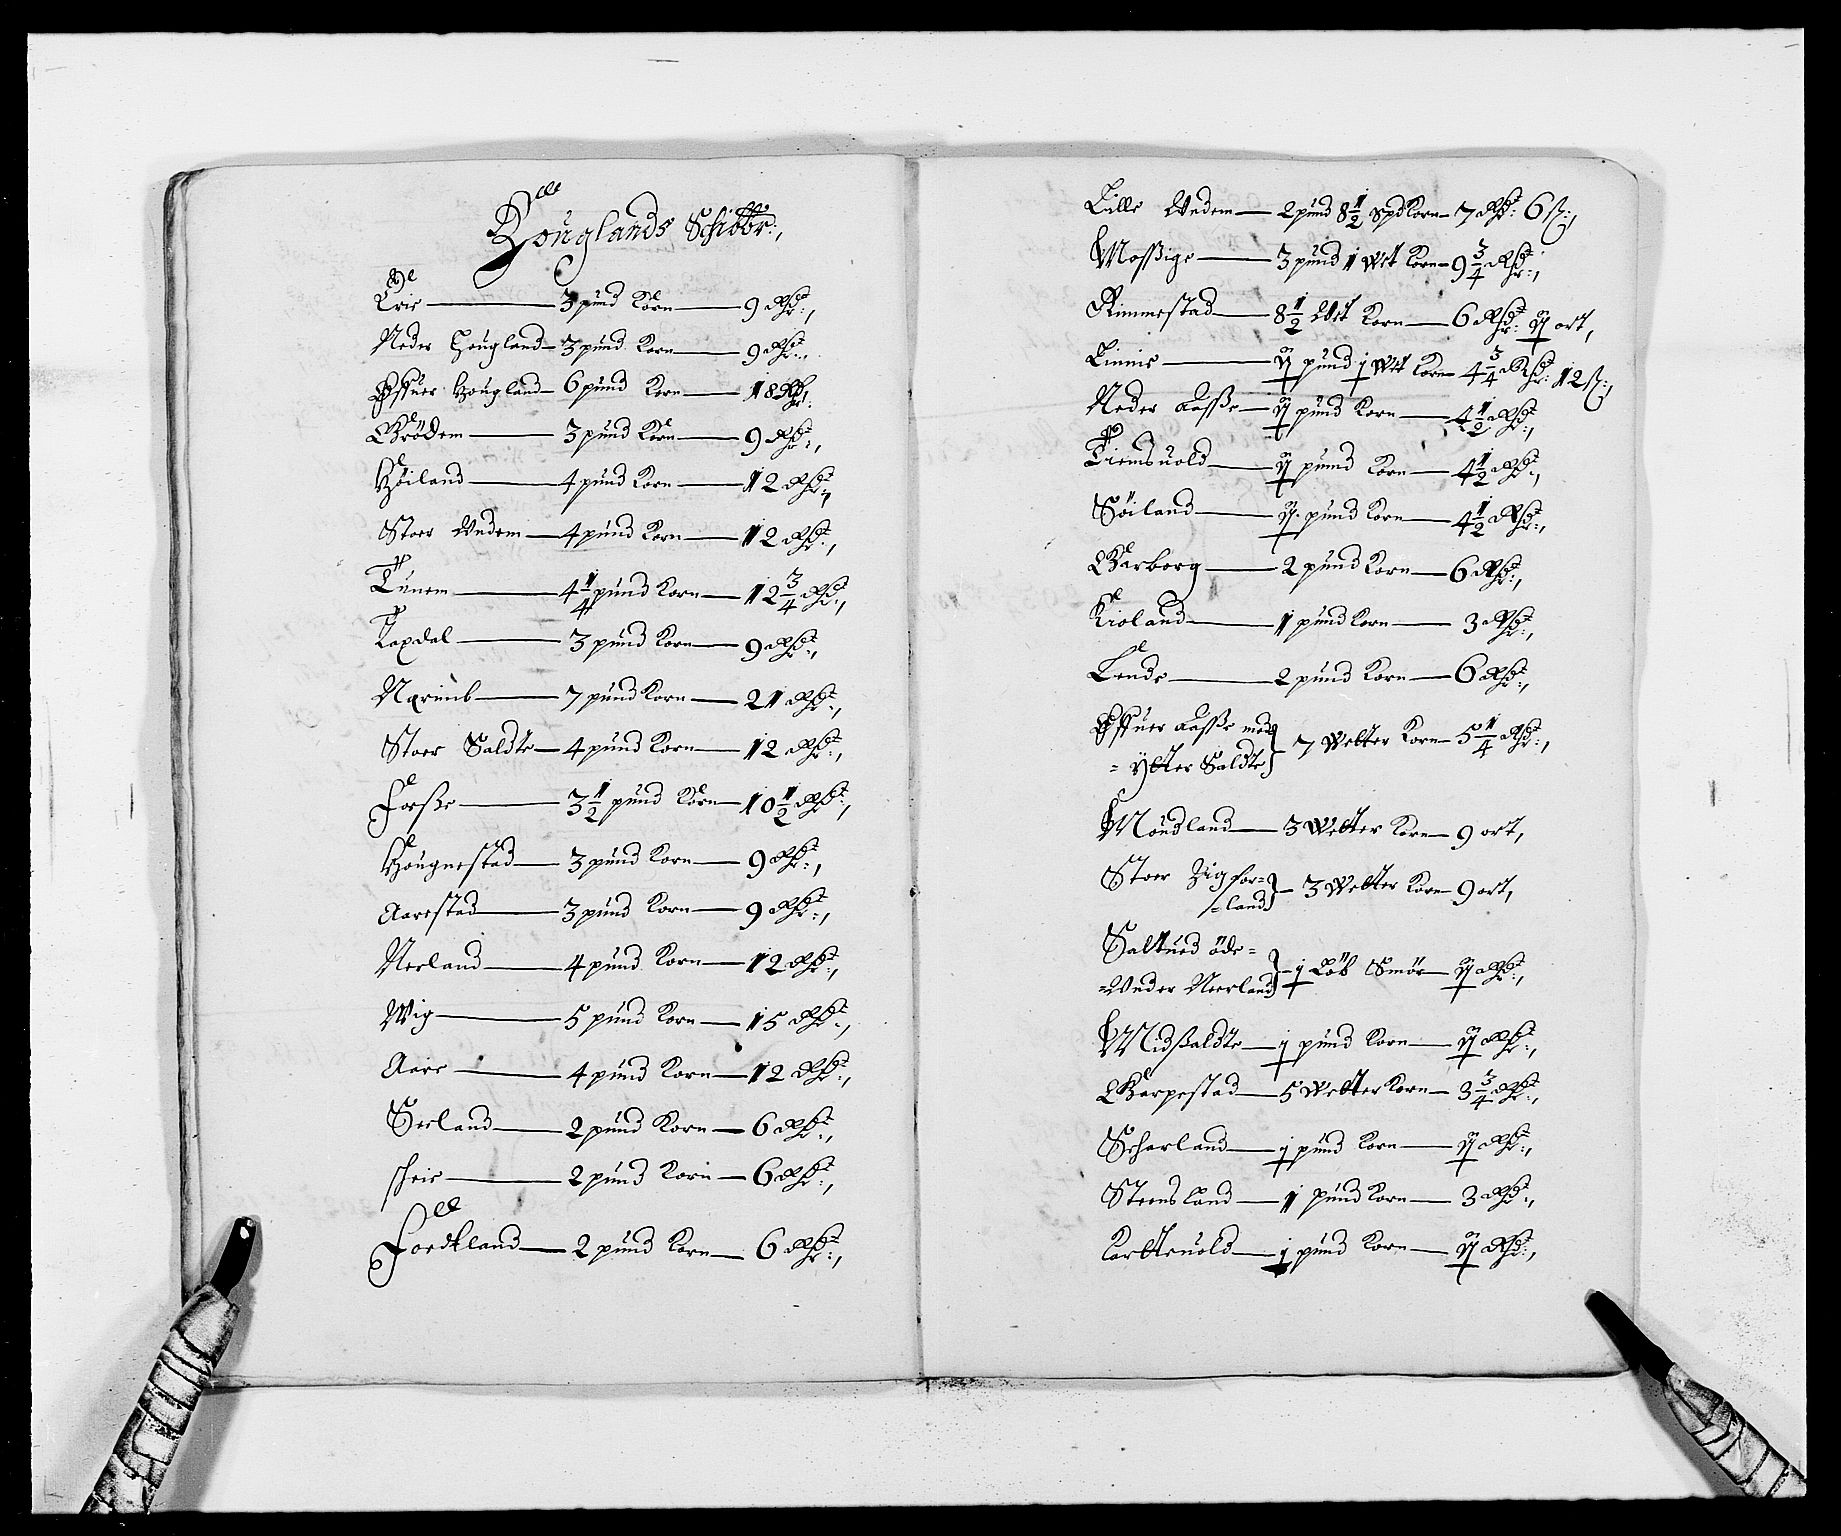 Houglands Schibbr:,
Erie 3 pund Korn 9 Rdr:,
Neder Hougland 3 pund Korn 9 Rdr:,
Øffuer Hougland 6 pund Korn 18 Rdr:
Brödem 3 pund Korn 9 Rdr:,
Höiland 4 pund Korn 12 Rdr:,
Stoer Undem 4 pund Korn 12 Rdr:,
Tunem 4 1/4 pund Korn 12 3/4 Rdr:,
Taxdal 3 pund Korn 9 Rdr:,
Nærimb 7 pund Korn 21 Rdr:,
Stoer Saldte 4 pund Korn 12 Rdr:,
Forsße 3 1/2 pund Korn 10 1/2 Rdr:,
Hougnestad 3 pund Korn 9 Rdr:,
Aarestad 3 pund Korn 9 Rdr:,
Nerland 4 pund Korn 12 Rdr:,
Wig 5 pund Korn 15 Rdr:,
Aare 4 pund Korn 12 Rdr:,
Serland 2 pund Korn 6 Rdr:,
scheie 2 pund Korn 6 Rdr:,
Foedtland 2 pund Korn 6 Rdr:,
Lille Undem 2 pund 8 1/2 Spd Korn 7 Rdr: 6 ß:,
Mossige 3 pund 1 Wet Korn 9 3/4 Rdr:,
Rimmestad 8 1/2 Wet Korn 6 Rdr: ij ort,
Linnie ij pund j Wet Korn 4 3/4 Rdr: 12 ß:,
Neder Lasße ij pund Korn 4 1/2 Rdr:,
Tiemsuold ij pund Korn 4 1/2 Rdr:,
Söiland ij pund Korn 4 1/2 Rdr:,
Garborg 2 pund Korn 6 Rdr:,
Kioland 1 pund Korn 3 Rdr:,
Lende 2 pund Korn 6 Rdr:,
Øffuer Lasße med
= Ytter Saldte 7 Wetter Korn 5 1/4 Rdr:,
Möndland 3 Wetter Korn 9 ort,
Stoer Zigfor=
=land 3 Wetter Korn 9 ort,
Saltued öde=
=Under Neerland j Löb Smör ij Rdr:,
Midsaldte j pund Korn ij Rdr:,
Garpestad 5 Wetter Korn 3 3/4 Rdr:,
Scharland j pund Korn ij Rdr:,
Steensland 1 pund Korn 3 Rdr:,
Kartteuold j pund Korn ij Rdr:,